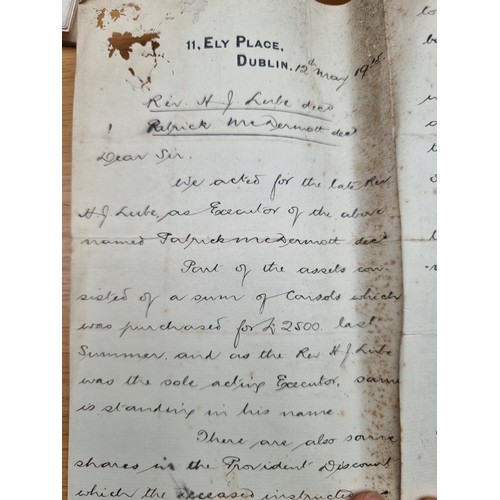 11, ELY PLACE,
DUBLIN. 12th May 19
Rev. H J Lube decd
Patrick McDermott decd
Dear Sir.
We acted for the late Rev
H J Lube, as Executor of the above
named Patrick McDermott decd
Part of the assets con-
sisted of a sum of Consols which
was purchased for £2500. last
Summer, and as the Rev H J Lube
was the sole acting Executor, same
is standing in his name.
There are also some
shares in the Provident Discount
which the deceased instructed